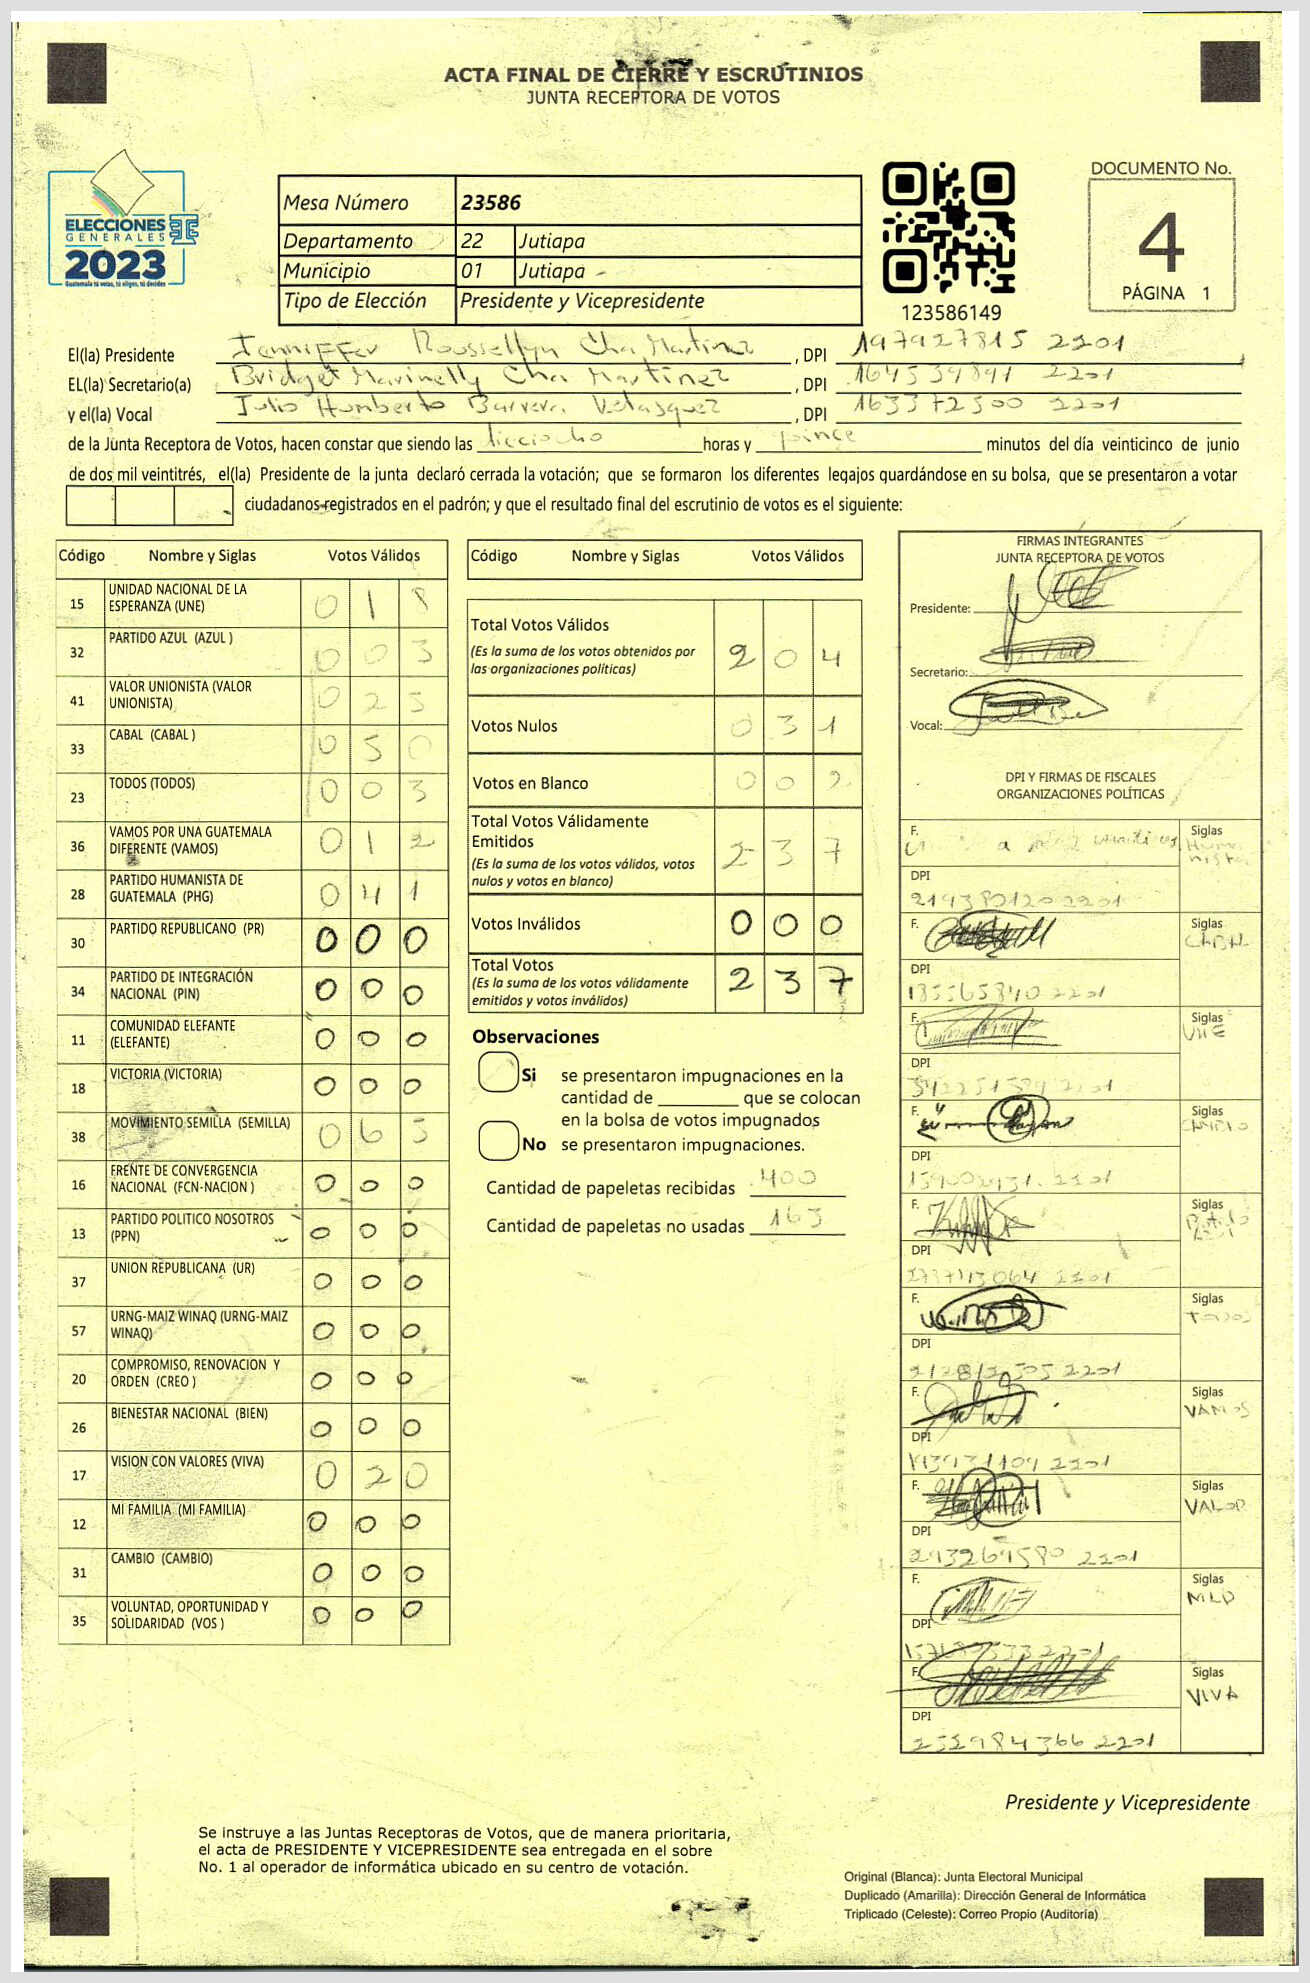 ACTA FINAL DE CIERRE Y ESCRUTINIOS
JUNTA RECEPTORA DE VOTOS
ELECCIONES
GENERALES
2023
Guatemala tú votas, tú eliges, tú decides
Mesa Número 23586
Departamento 22 Jutiapa
Municipio 01 Jutiapa
Tipo de Elección Presidente y Vicepresidente
123586149
DOCUMENTO No.
4
PÁGINA 1
El(la) Presidente Jenniffer Rousellyn Cha Martinez , DPI 197927815 2201
EL(la) Secretario(a) Bridget Marinelly Cha Martinez , DPI 164539891 2201
y el(la) Vocal Julio Humberto Barrera Velasquez , DPI 163372500 2201
de la Junta Receptora de Votos, hacen constar que siendo las horas y quince minutos del día veinticinco de junio
de dos mil veintitrés, el(la) Presidente de la junta declaró cerrada la votación; que se formaron los diferentes legajos quardándose en su bolsa, que se presentaron a votar
ciudadanos registrados en el padrón; y que el resultado final del escrutinio de votos es el siguiente:
Código Nombre y Siglas Votos Válidos
15 UNIDAD NACIONAL DE LA ESPERANZA (UNE) 0 1 8
32 PARTIDO AZUL (AZUL ) 0 0 3
41 VALOR UNIONISTA (VALOR UNIONISTA) 0 2 5
33 CABAL (CABAL ) 0 5 0
23 TODOS (TODOS) 0 0 3
36 VAMOS POR UNA GUATEMALA DIFERENTE (VAMOS) 0 1 2
28 PARTIDO HUMANISTA DE GUATEMALA (PHG) 0 4 1
30 PARTIDO REPUBLICANO (PR) 0 0 0
34 PARTIDO DE INTEGRACIÓN NACIONAL (PIN) 0 0 0
11 COMUNIDAD ELEFANTE (ELEFANTE) 0 0 0
18 VICTORIA (VICTORIA) 0 0 0
38 MOVIMIENTO SEMILLA (SEMILLA) 0 6 5
16 FRENTE DE CONVERGENCIA NACIONAL (FCN-NACION ) 0 0 0
13 PARTIDO POLITICO NOSOTROS (PPN) 0 0 0
37 UNION REPUBLICANA (UR) 0 0 0
57 URNG-MAIZ WINAQ (URNG-MAIZ WINAQ) 0 0 0
20 COMPROMISO, RENOVACION Y ORDEN (CREO ) 0 0 0
26 BIENESTAR NACIONAL (BIEN) 0 0 0
17 VISION CON VALORES (VIVA) 0 2 0
12 MI FAMILIA (MI FAMILIA) 0 0 0
31 CAMBIO (CAMBIO) 0 0 0
35 VOLUNTAD, OPORTUNIDAD Y SOLIDARIDAD (VOS ) 0 0 0
Código Nombre y Siglas Votos Válidos
Total Votos Válidos 2 0 4
(Es la suma de los votos obtenidos por
las organizaciones políticas)
Votos Nulos 0 3 1
Votos en Blanco 0 0 2
Total Votos Válidamente
Emitidos 2 3 7
(Es la suma de los votos válidos, votos
nulos y votos en blanco)
Votos Inválidos 0 0 0
Total Votos 2 3 7
(Es la suma de los votos válidamente
emitidos y votos inválidos)
Observaciones
Si se presentaron impugnaciones en la
cantidad de ________ que se colocan
en la bolsa de votos impugnados
No se presentaron impugnaciones.
Cantidad de papeletas recibidas 400
Cantidad de papeletas no usadas 163
FIRMAS INTEGRANTES
JUNTA RECEPTORA DE VOTOS
Presidente:
Secretario:
Vocal:
DPI Y FIRMAS DE FISCALES
ORGANIZACIONES POLÍTICAS
F. Siglas Humanista
DPI
F. Siglas CABAL
DPI 185565840 2201
F. Siglas UNE
DPI
F. Siglas
DPI
F. Siglas
DPI
F. Siglas TODOS
DPI
F. Siglas VAMOS
DPI
F. Siglas VALOR
DPI 293269580 2201
F. Siglas MLP
DPI
F. Siglas VIVA
DPI 252984366 2201
Presidente y Vicepresidente
Se instruye a las Juntas Receptoras de Votos, que de manera prioritaria,
el acta de PRESIDENTE Y VICEPRESIDENTE sea entregada en el sobre
No. 1 al operador de informática ubicado en su centro de votación.
Original (Blanca): Junta Electoral Municipal
Duplicado (Amarilla): Dirección General de Informática
Triplicado (Celeste): Correo Propio (Auditoría)